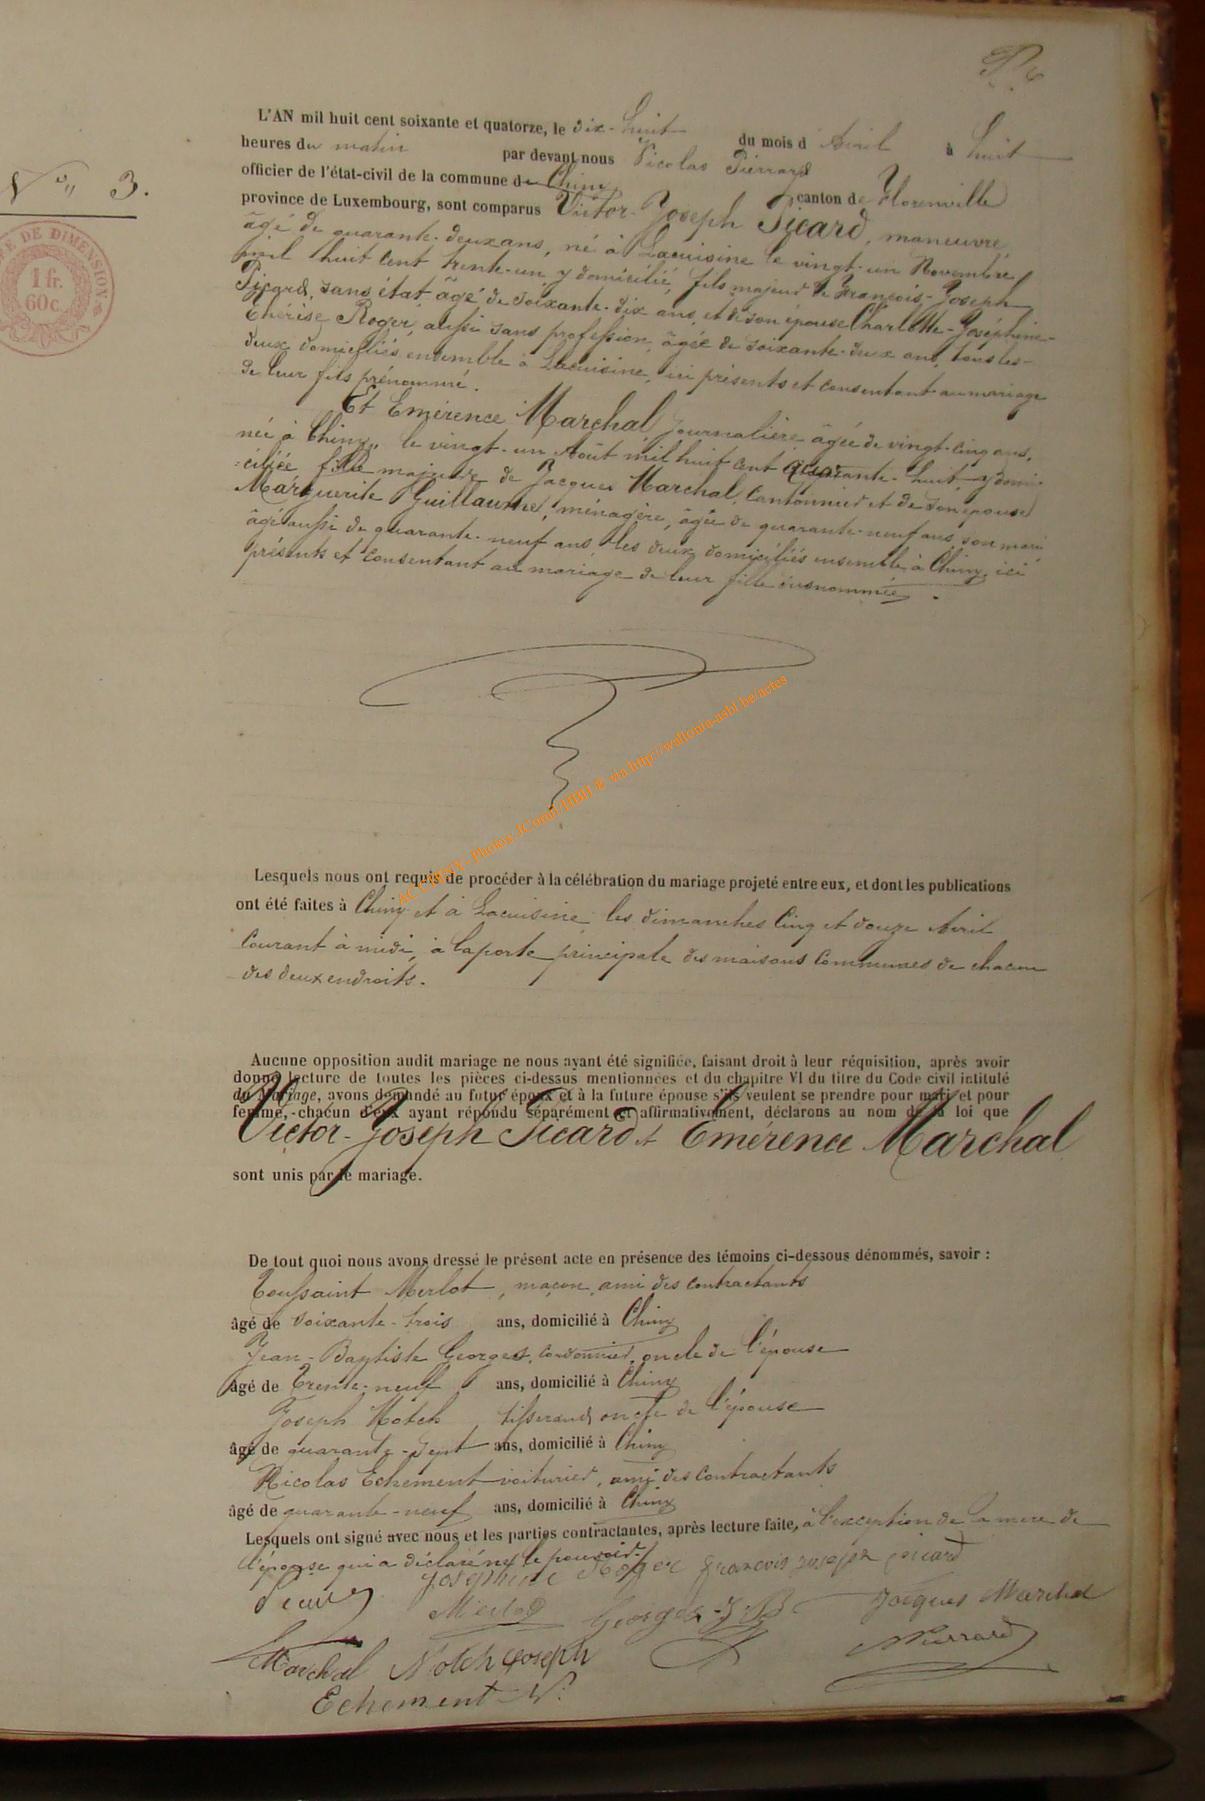 N° 3.
E DE DIMENSION
1 fr.
60c.
L'AN mil huit cent soixante et quatorze, le dix-huit du mois d'Avril à huit
heures du matin par devant nous Nicolas Pierrard
officier de l'état-civil de la commune de Chiny canton de Florenville
province de Luxembourg, sont comparus Victor-Joseph Picard, manœuvre
âgé de quarante-deux ans, né à Lacuisine le vingt-un Novembre
mil huit cent trente-un y domicilié, fils majeur de François-Joseph
Picard, sans état âgé de soixante-dix ans et de son épouse Charlotte-Joséphine-
Thérèse Roger, aussi sans profession, âgée de soixante-deux ans, tous les
deux domiciliés ensemble à Lacuisine, ici présents et consentant au mariage
de leur fils prénommé.
Et Emérence Marchal journalière âgée de vingt-cinq ans,
née à Chiny, le vingt-un Août mil huit cent quarante-huit, y domi-
=ciliée fille majeure de Jacques Marchal, Cantonnier et de son épouse
Marguerite Guillaume, ménagère, âgée de quarante-neuf ans, son mari
âgé aussi de quarante-neuf ans, les deux domiciliés ensemble à Chiny, ici
présents et consentant au mariage de leur fille susnommée.
AC CHINY - Photos JComb HBH © via http://wallonia-asbl.be/actes
Lesquels nous ont requis de procéder à la célébration du mariage projeté entre eux, et dont les publications
ont été faites à Chiny et à Lacuisine les dimanches Cinq et douze Avril
Courant à midi, à la porte principale des maisons Communes de chacun
des deux endroits.
Aucune opposition audit mariage ne nous ayant été signifiée, faisant droit à leur réquisition, après avoir
donné lecture de toutes les pièces ci-dessus mentionnées et du chapitre VI du titre du Code civil intitulé
du Mariage, avons demandé au futur époux et à la future épouse s'ils veulent se prendre pour mari et pour
femme, chacun d'eux ayant répondu séparément et affirmativement, déclarons au nom de la loi que
Victor-Joseph Picard et Emérence Marchal
sont unis par le mariage.
De tout quoi nous avons dressé le présent acte en présence des témoins ci-dessous dénommés, savoir :
Toussaint Merlot, maçon, ami des contractants
âgé de soixante-trois ans, domicilié à Chiny
Jean-Baptiste Georges, cordonnier, oncle de l'épouse
âgé de Trente-neuf ans, domicilié à Chiny
Joseph Notch, tisserand, oncle de l'épouse
âgé de quarante-sept ans, domicilié à Chiny
Nicolas Echement voiturier, ami des contractants
âgé de quarante-neuf ans, domicilié à Chiny
Lesquels ont signé avec nous et les parties contractantes, après lecture faite, à l'exception de la mère de
l'épouse qui a déclaré ne le pouvoir.
Picard Joséphine Roger François joseph picard
Merlot Georges J-B Jacques Marchal
Marchal Notch joseph NPierrard
Echement N.